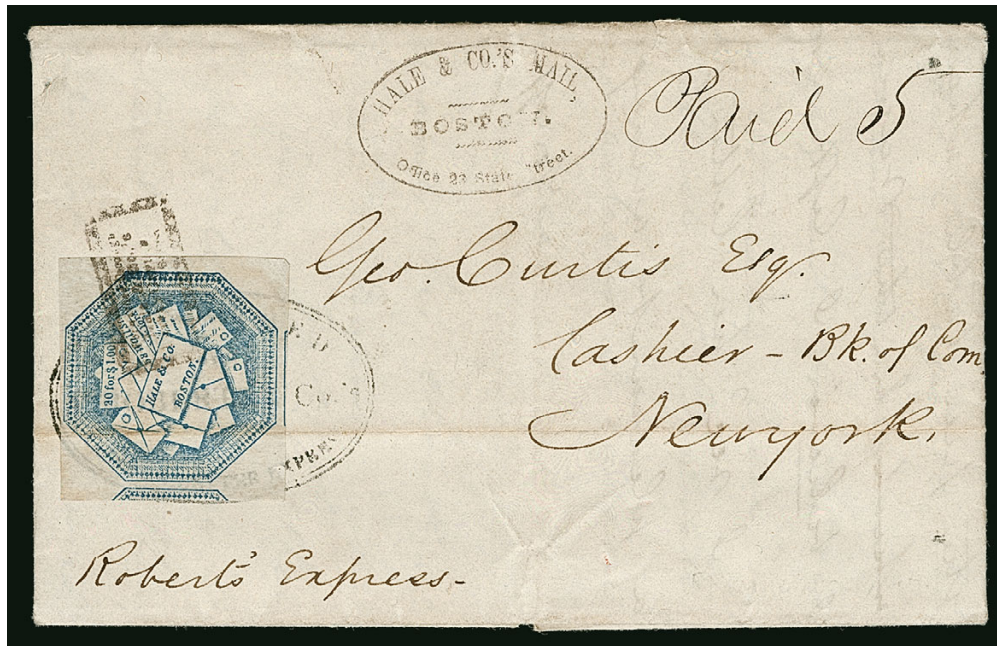 HALE & CO.'S MAIL,
BOSTON.
Office 23 State Street.
Paid 5
Geo. Curtis Esq.
Cashier - Bk. of Com
Newyork.
20 for $1.00
HALE & CO.
BOSTON.
Co.'s
Robert's Express-